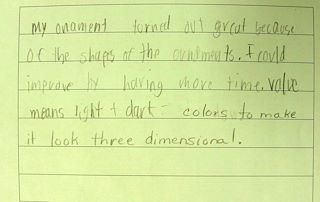 my onament turned out great because
of the shaps of the orndments. I could
improve by having more time. value
means light + dark - colors to make
it look three dimensional.